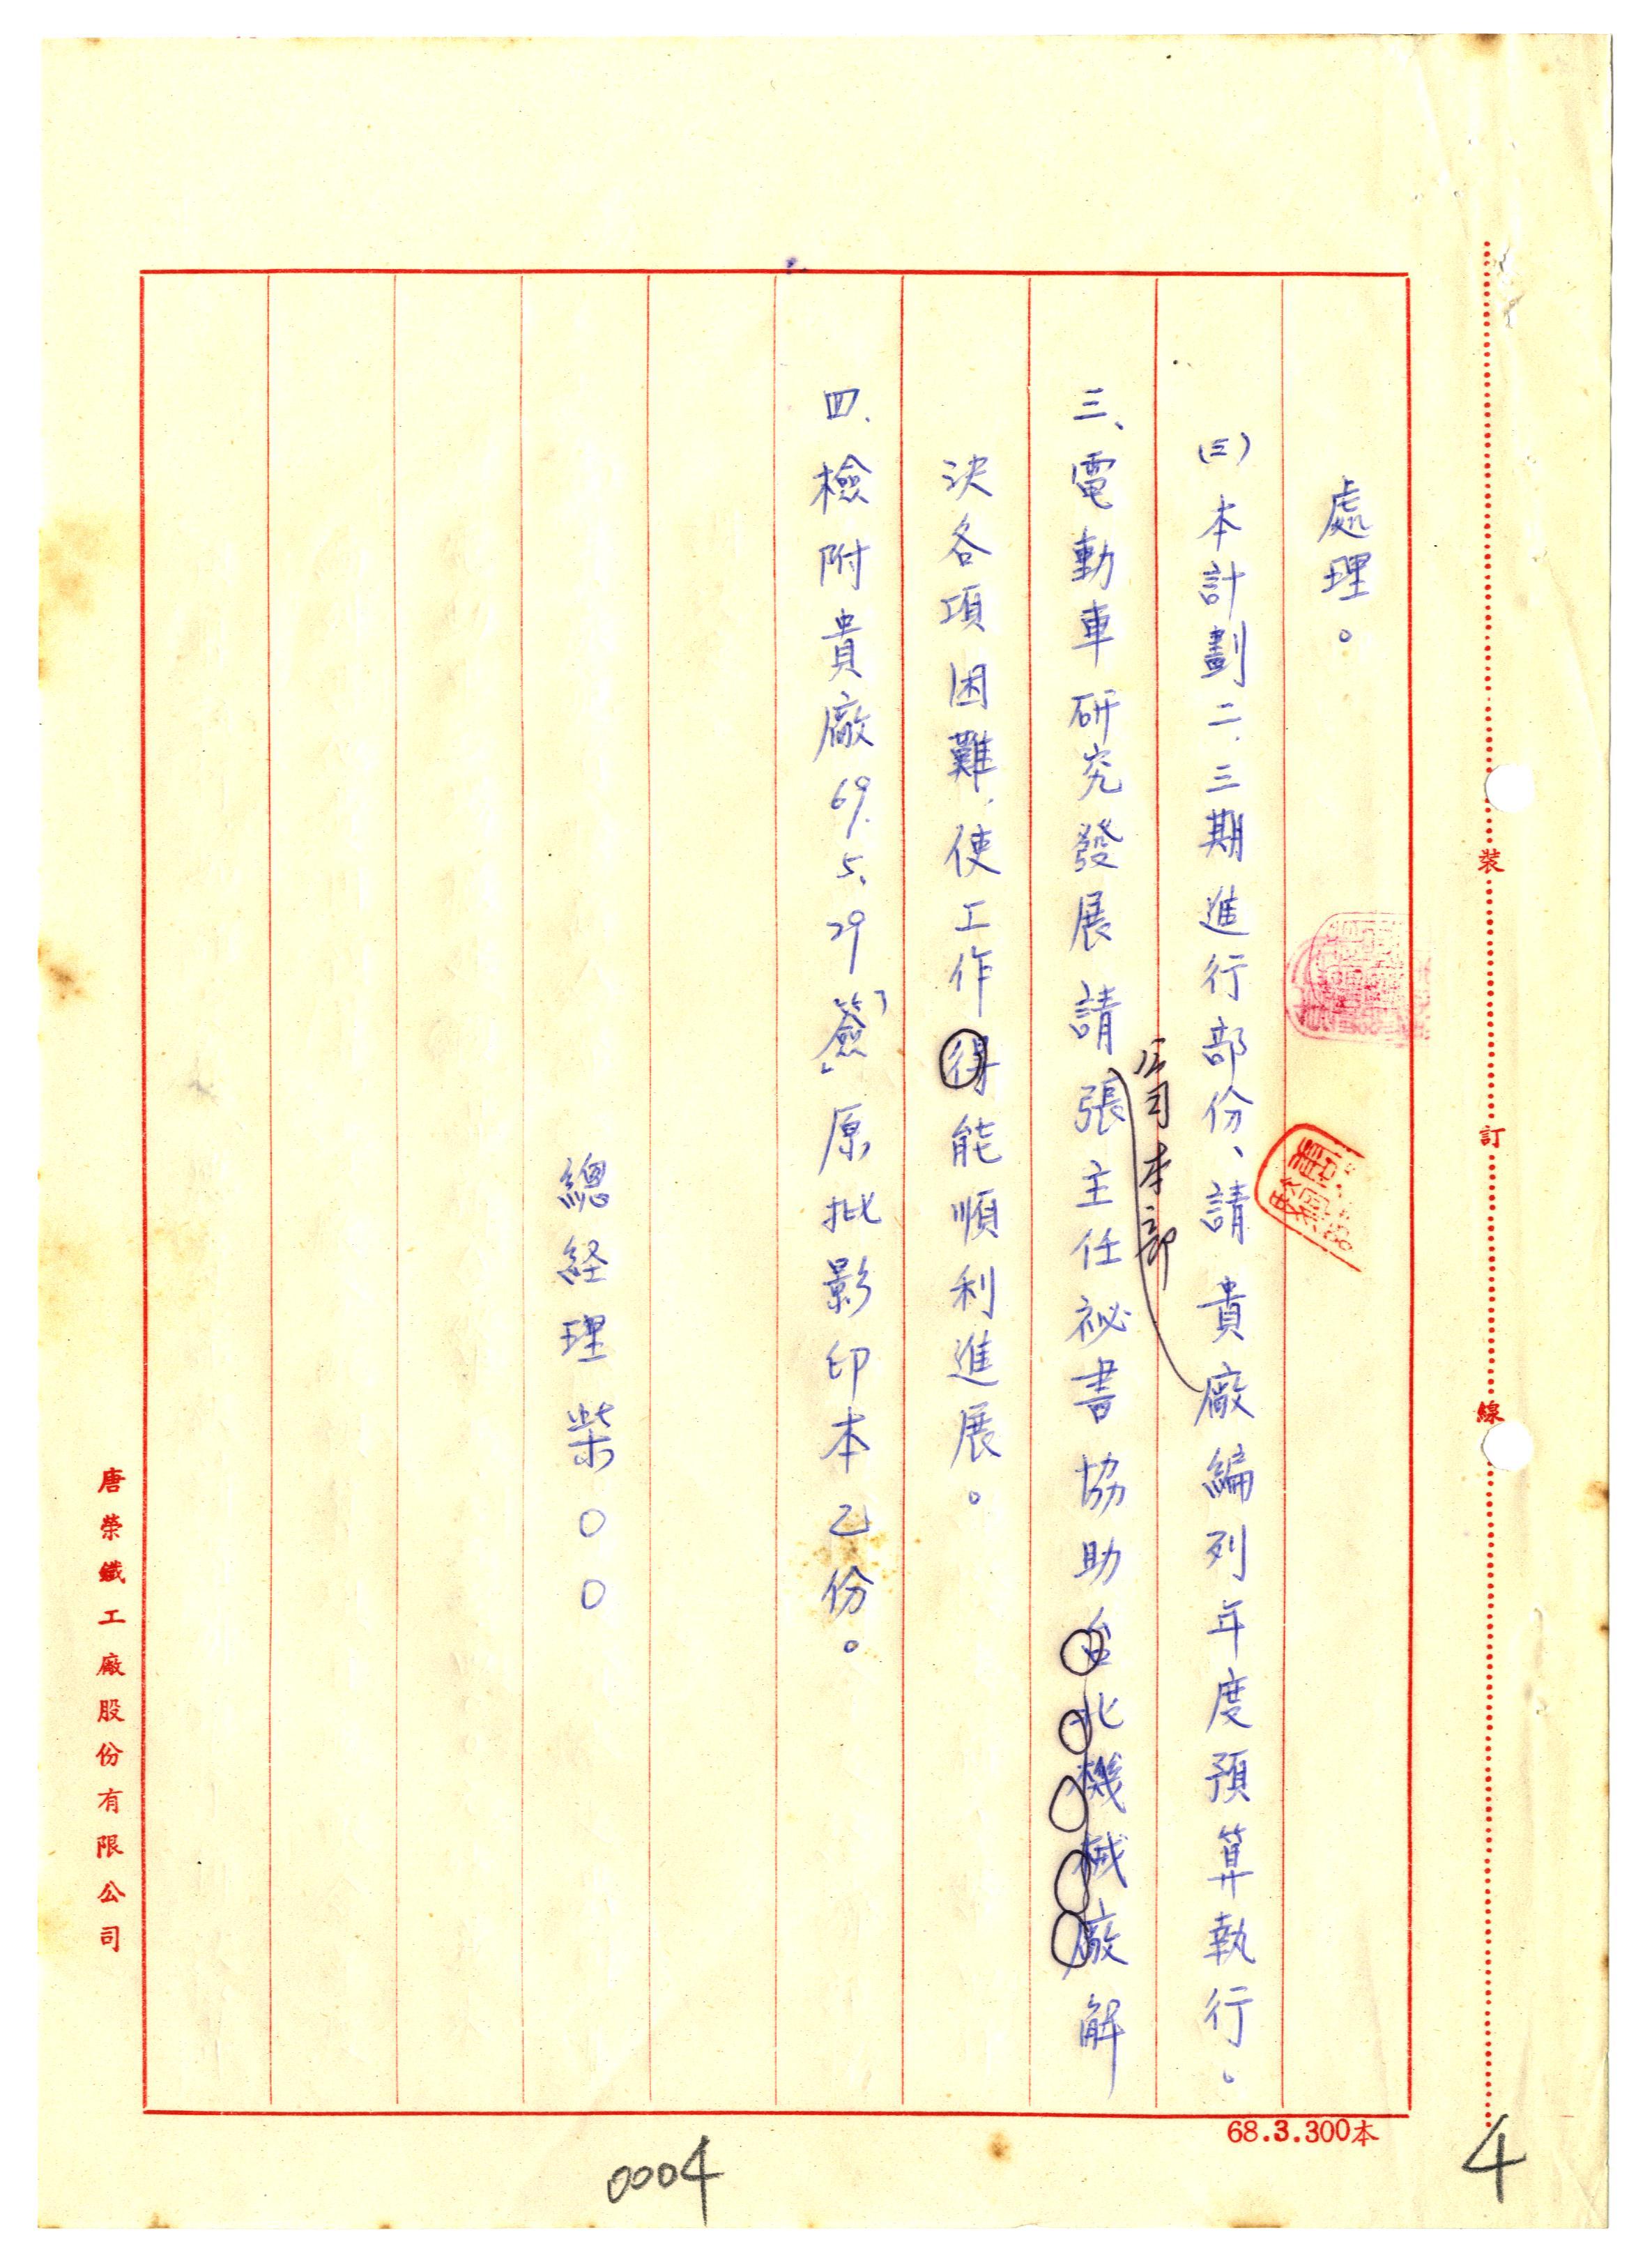 處理。
(三)本計劃二.三期進行部份、請貴廠編列年度預算執行。
公司本部
三、電動車研究發展請張主任祕書協助台北機械廠解
決各項困難.使工作得能順利進展。
四.檢附貴廠69.5.29「簽」原批影印本乙份。
總経理柴○○
裝
訂
線
唐榮鐵工廠股份有限公司
68.3.300本
0004
4